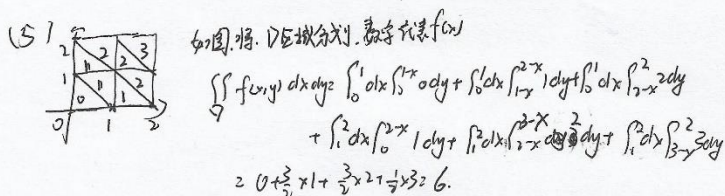 (5)
2 2 3
1 1 2
1 1 2
0 0 1 2
如图,将D区域分划.数字代表f(x)
∬_D f(x,y)dxdy = ∫_0^1 dx∫_0^{1-x} 0dy + ∫_0^1 dx∫_{1-x}^{2-x} 1dy + ∫_0^1 dx∫_{2-x}^2 2dy
+ ∫_1^2 dx∫_0^{2-x} 1dy + ∫_1^2 dx∫_{2-x}^{3-x} 2dy + ∫_1^2 dx∫_{3-x}^2 3dy
= 0+3/2×1+3/2×2+1/2×3=6.